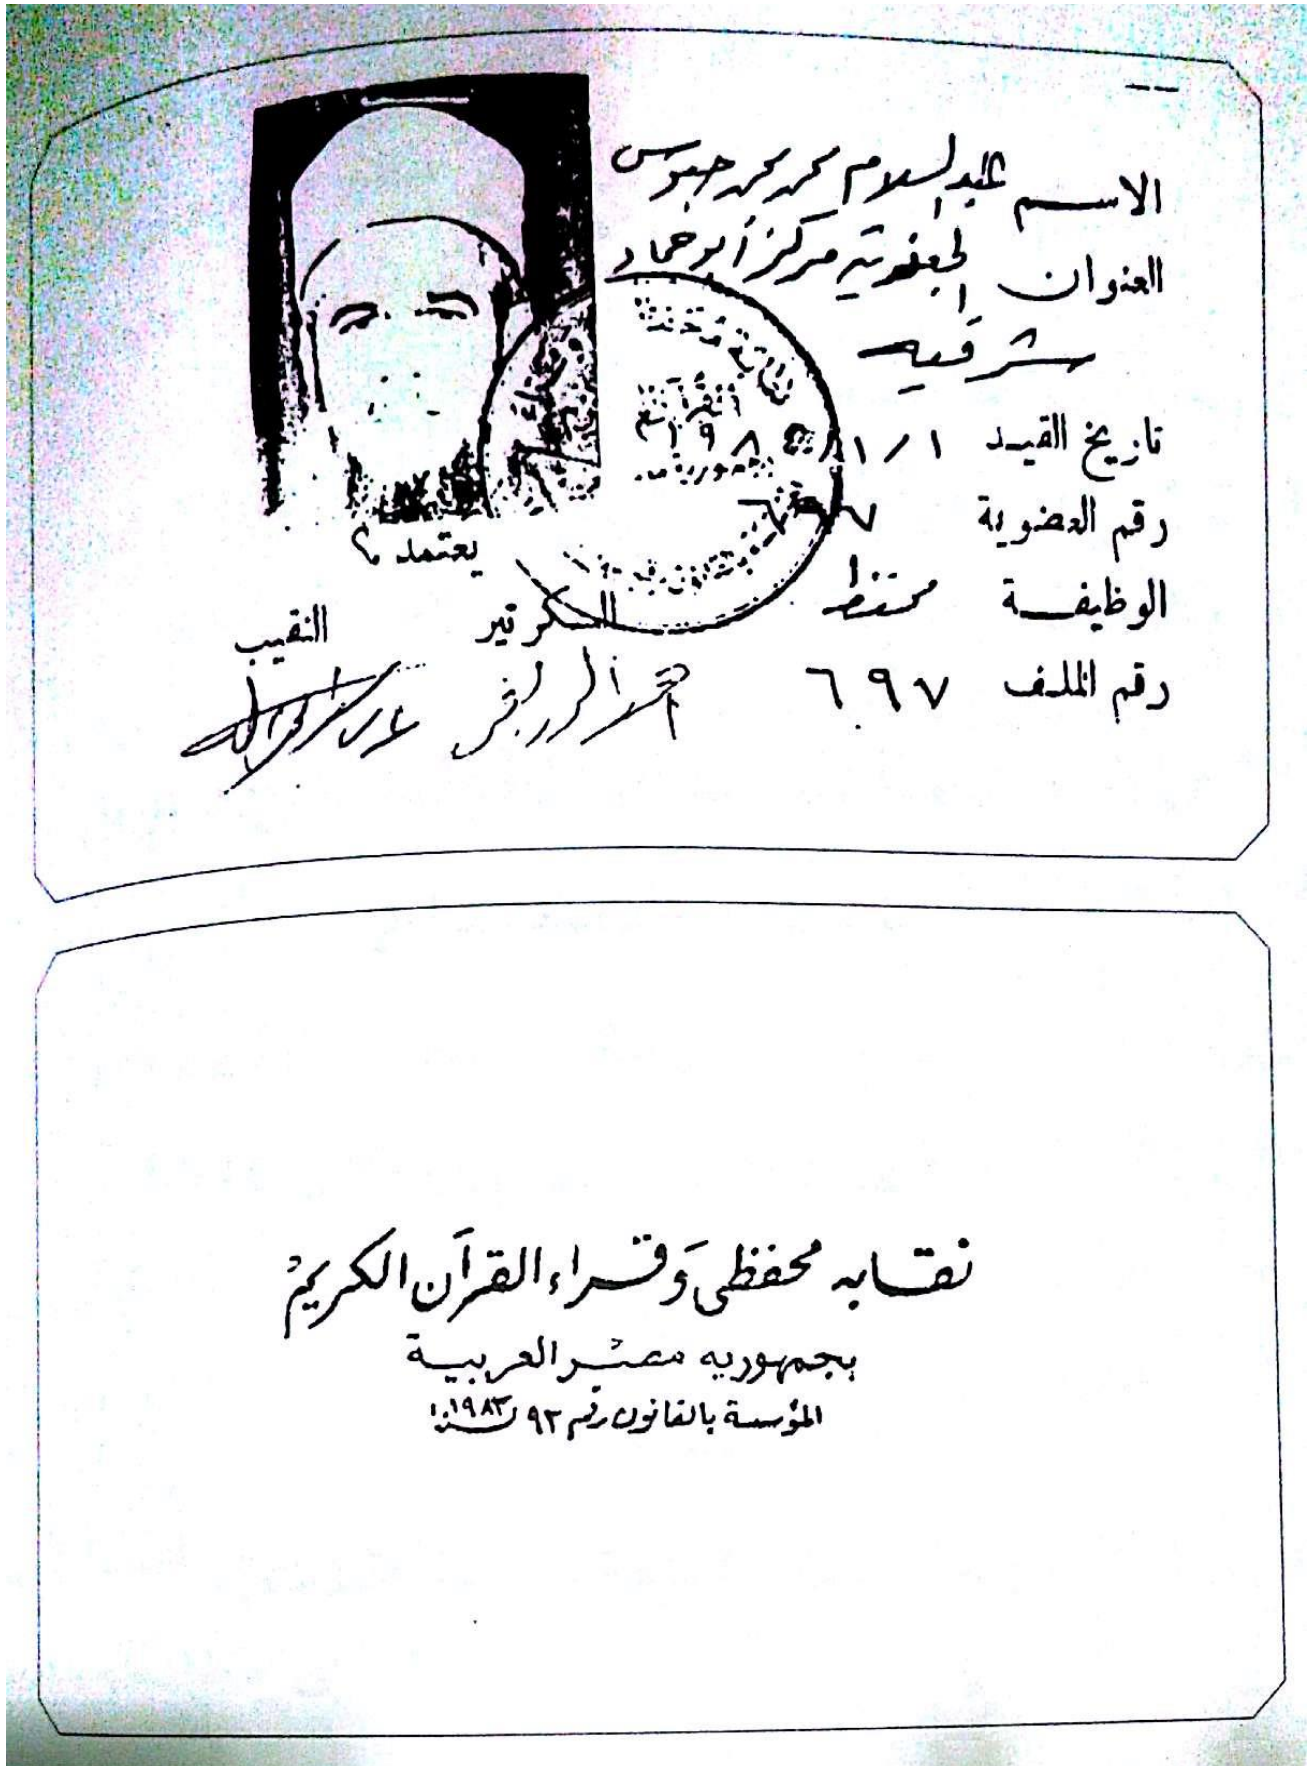 الاسم عبد السلام محمد محمد حبوس
العنوان الجعفرية مركز أبو حماد
شرقية
تاريخ القيد ١ / ١ /
رقم العضوية ٦٩٧
الوظيفة محفظ
رقم الملف ٦٩٧
يعتمد ،
السكرتير النقيب
نقابه محفظى وقراء القرآن الكريم
بجمهوريه مصر العربية
المؤسسة بالقانون رقم ٩٣ لسنة ١٩٨٣